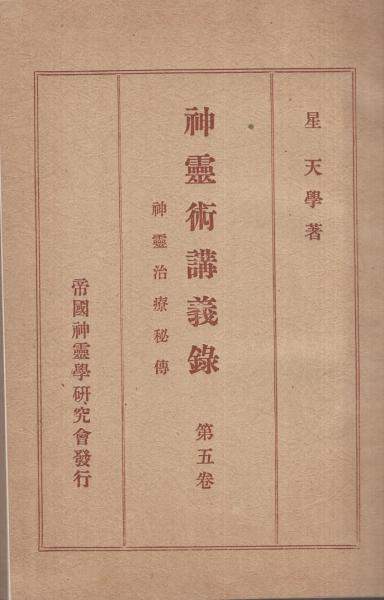 星天學著
神靈術講義錄 第五卷
神靈治療秘傳
帝國神靈學研究會發行